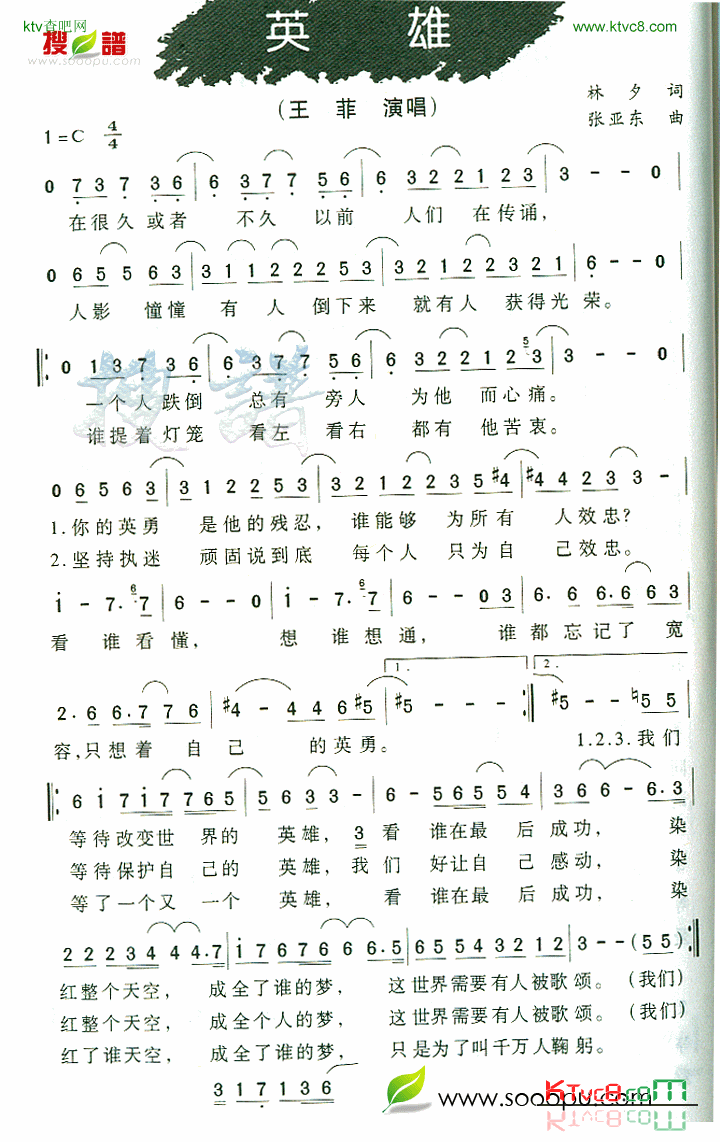 ktv查吧网
搜譜
www.sooopu.com
英 雄
www.ktvc8.com
(王 菲 演唱)
林 夕 词
张亚东 曲
1=C 4/4
0 7 3 7 3 6 | 6 3 7 7 5 6 | 6 3 2 2 1 2 3 | 3 - - 0 |
在很久或者 不久 以前 人们 在传诵，
0 6 5 5 6 3 | 3 1 1 2 2 2 5 3 | 3 2 1 2 2 3 2 1 | 6 - - 0 |
人影 憧憧 有 人 倒下来 就有人 获得光荣。
0 1 3 7 3 6 | 6 3 7 7 5 6 | 6 3 2 2 1 2 5 3 | 3 - - 0 |
一个人跌倒 总有 旁人 为他 而心痛。
谁提着灯笼 看左 看右 都有 他苦衷。
0 6 5 6 3 | 3 1 2 2 5 3 | 3 2 1 2 2 3 5 #4 | #4 4 2 2 3 - |
1.你的英勇 是他的残忍，谁能够 为所有 人效忠?
2.坚持执迷 顽固说到底 每个人 只为自 己效忠。
i - 7. 6 7 | 6 - - 0 | i - 7. 6 7 | 6 - - 0 3 | 6. 6 6. 6 6 3 |
看 谁看懂， 想 谁想通， 谁都忘记了 宽
1. 2.
2. 6 6. 7 7 6 | #4 - 4 4 6 #5 | #5 - - :‖ #5 - - ♮5 5 |
容,只想着 自己 的英勇。 1.2.3.我们
6 i 7 i 7 7 6 5 | 5 6 3 3 - | 6 - 5 6 5 4 | 3 6 6 - 6. 3 |
等待改变世 界的 英雄，3 看 谁在最 后成功， 染
等待保护自 己的 英雄，我们 好让自 己感动， 染
等了一个又 一个 英雄， 看 谁在最 后成功， 染
2 2 2 3 4 4 4. 7 | i 7 6 7 6 6 6. 5 | 6 5 5 4 3 2 1 2 | 3 - - (5 5) :‖
红整个天空， 成全了谁的梦， 这世界需要有人被歌颂。(我们)
红整个天空， 成全个人的梦， 这世界需要有人被歌颂。(我们)
红了谁天空， 成全了谁的梦， 只是为了叫千万人鞠躬。
3 1 7 1 3 6
www.sooopu.com
KTvc8.com